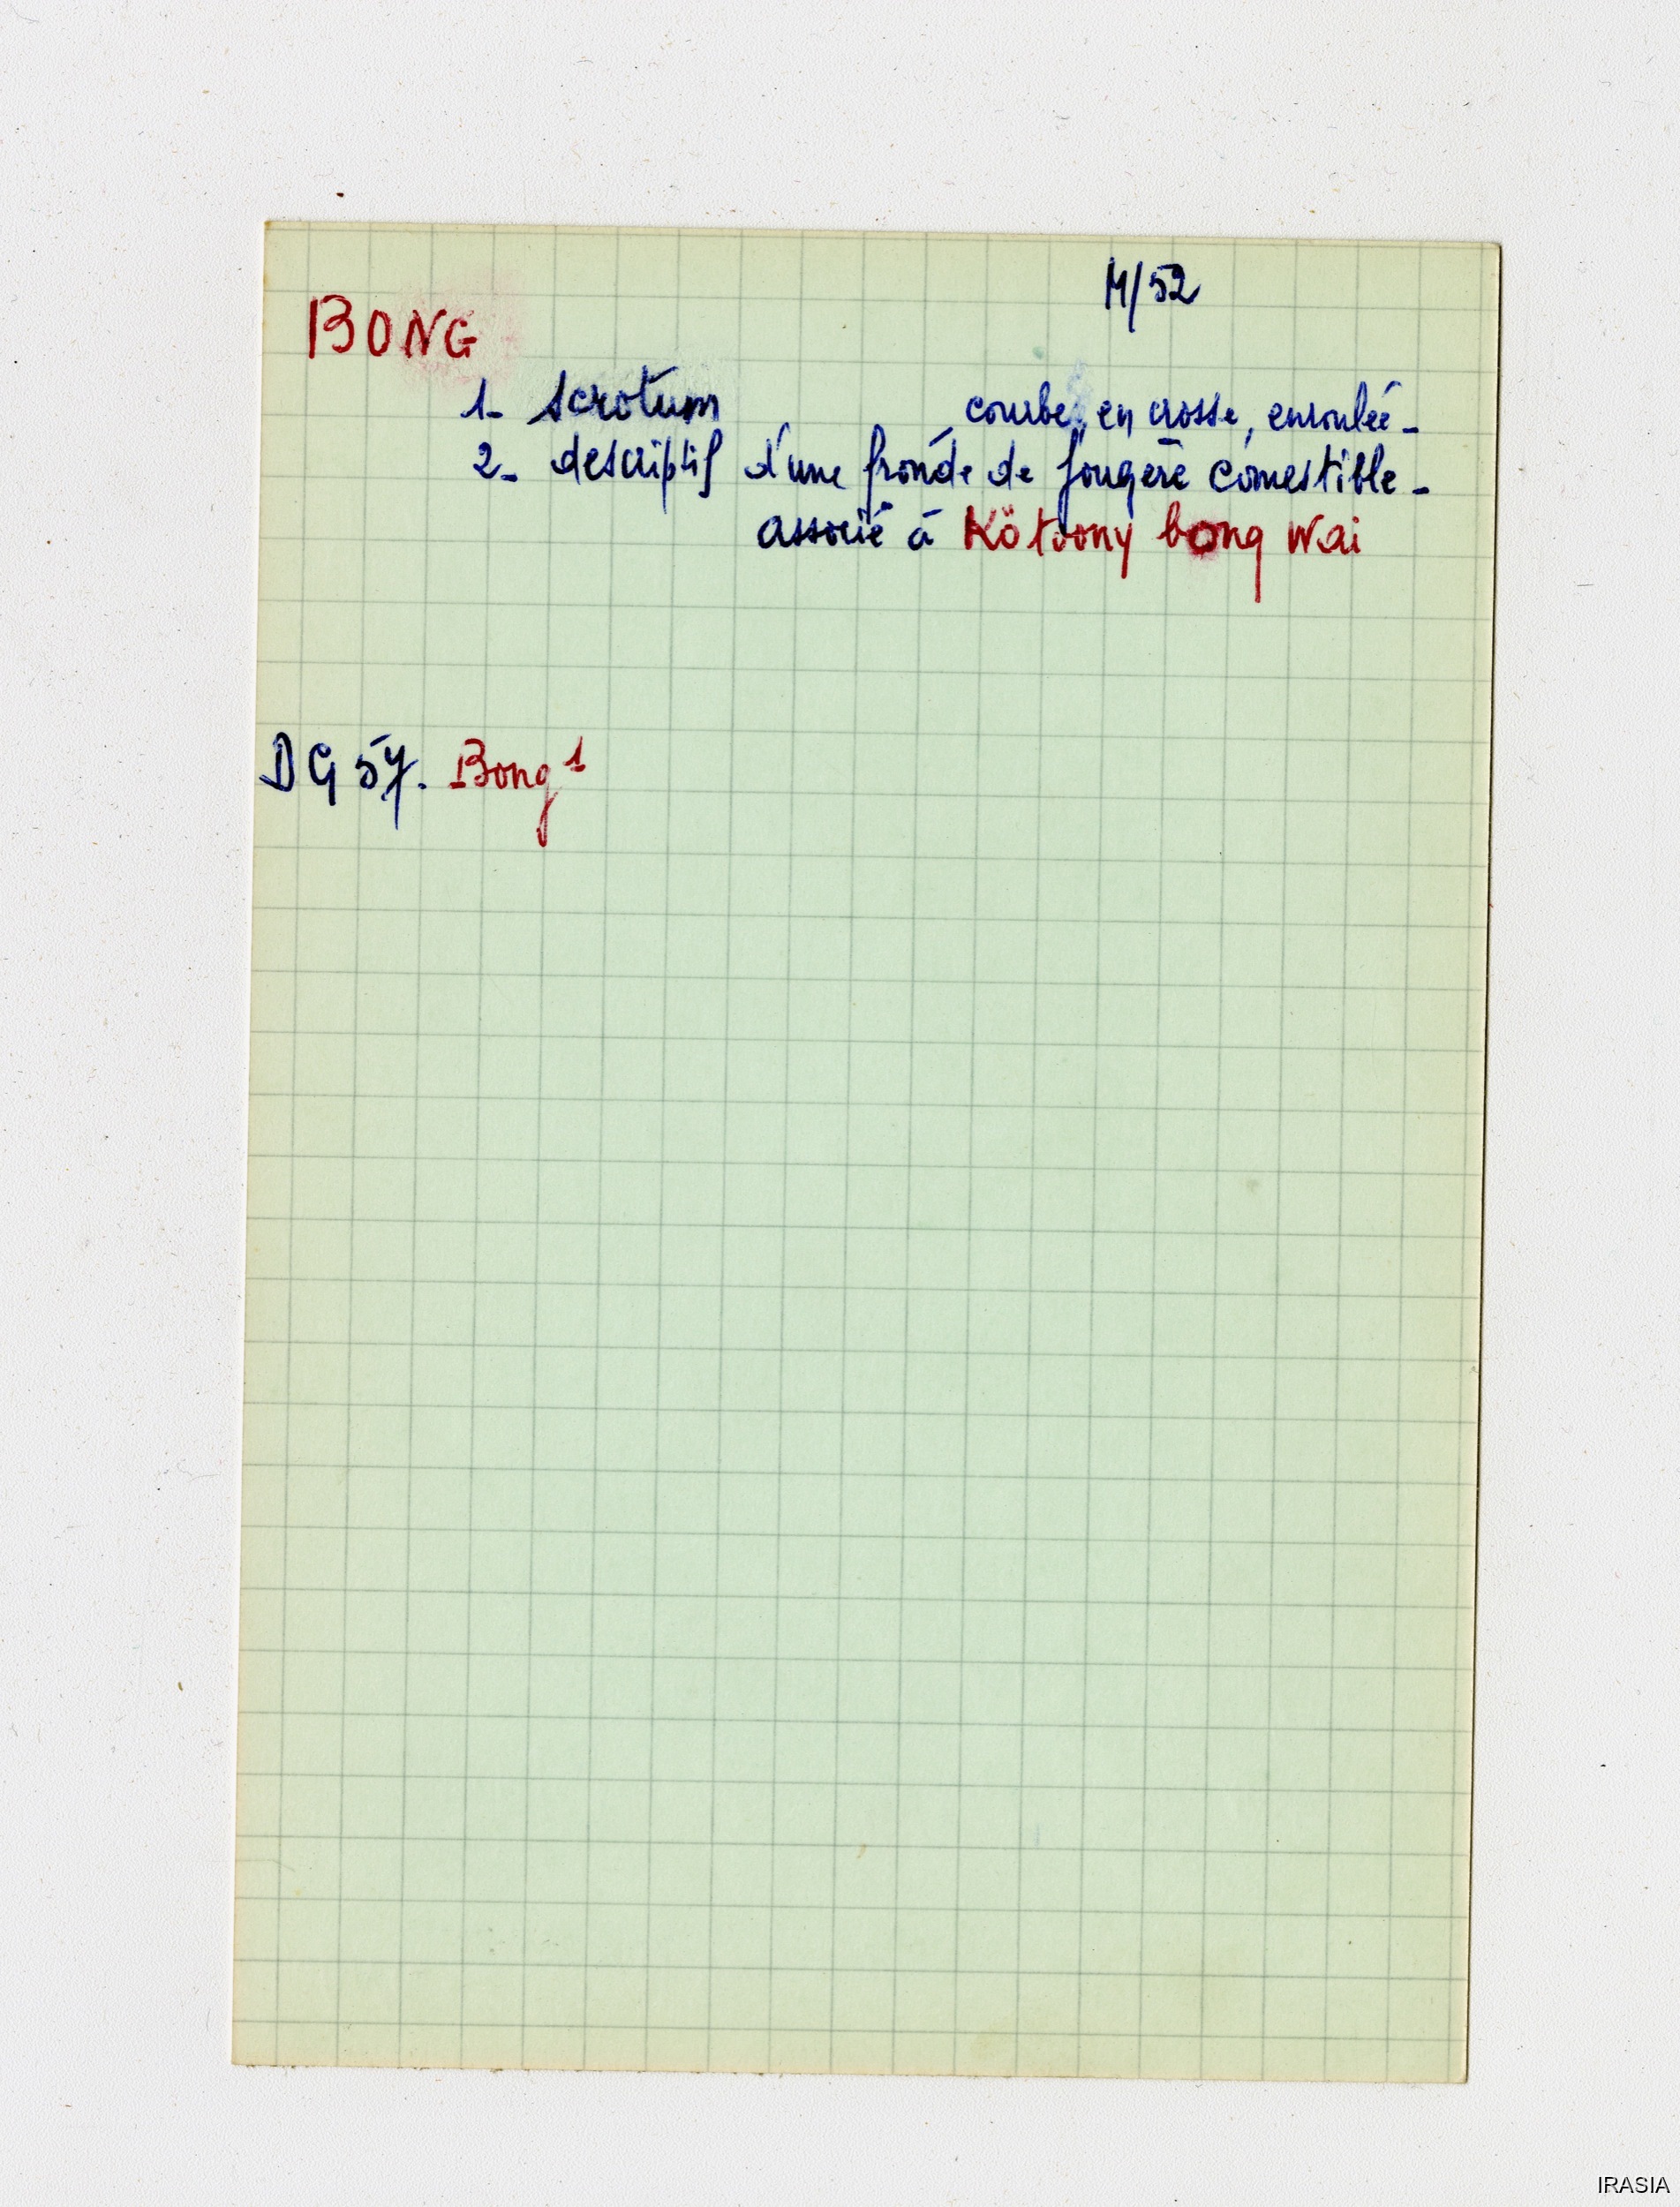 M/52
BONG
1- scrotum courbe, en crosse, enroulée -
2- descriptif d'une fronde de fougère comestible -
associé à Kötoony bong wai
DG 57. Bong 1
IRASIA